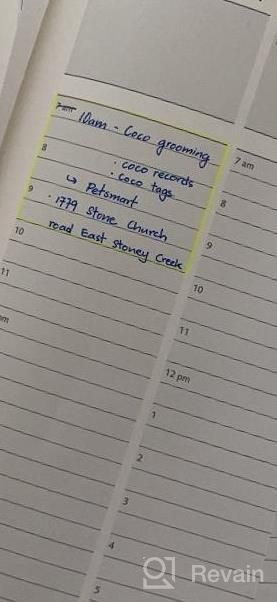 7 am
10am - Coco grooming
8
· coco records
· coco tags
↳ Petsmart
9
· 1779 Stone Church
road East Stoney Creek
10
11
pm
7 am
8
9
10
11
12 pm
1
2
3
4
5
Revain